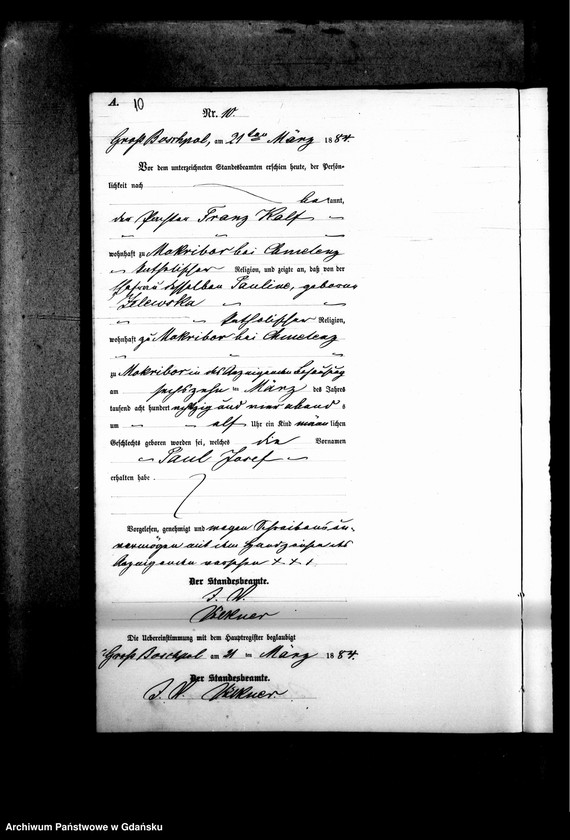 A. 10
Nr. 10.
Groß Boschpol, am 21ten März 1884.
Vor dem unterzeichneten Standesbeamten erschien heute, der Persön-
lichkeit nach
bekannt,
der Franz Kalf
wohnhaft zu Mokribor bei
katholischer Religion, und zeigte an, daß von der
Ehefrau desselben Pauline, geborene
Zelewska
katholischer Religion,
wohnhaft zu Mokribor bei
zu Mokribor in des Anzeigenden Behausung
am sechszehn ten März des Jahres
tausend acht hundert achtzig und vier abends
um elf Uhr ein Kind männlichen
Geschlechts geboren worden sei, welches die Vornamen
Paul Josef
erhalten habe.
Vorgelesen, genehmigt und wegen Schreibensun-
vermögen mit dem Handzeichen des
Anzeigenden versehen + + +
Der Standesbeamte.
J. V.
Völkner
Die Uebereinstimmung mit dem Hauptregister beglaubigt
Groß Boschpol am 21 ten März 1884.
Der Standesbeamte.
J. V. Völkner.
Archiwum Państwowe w Gdańsku